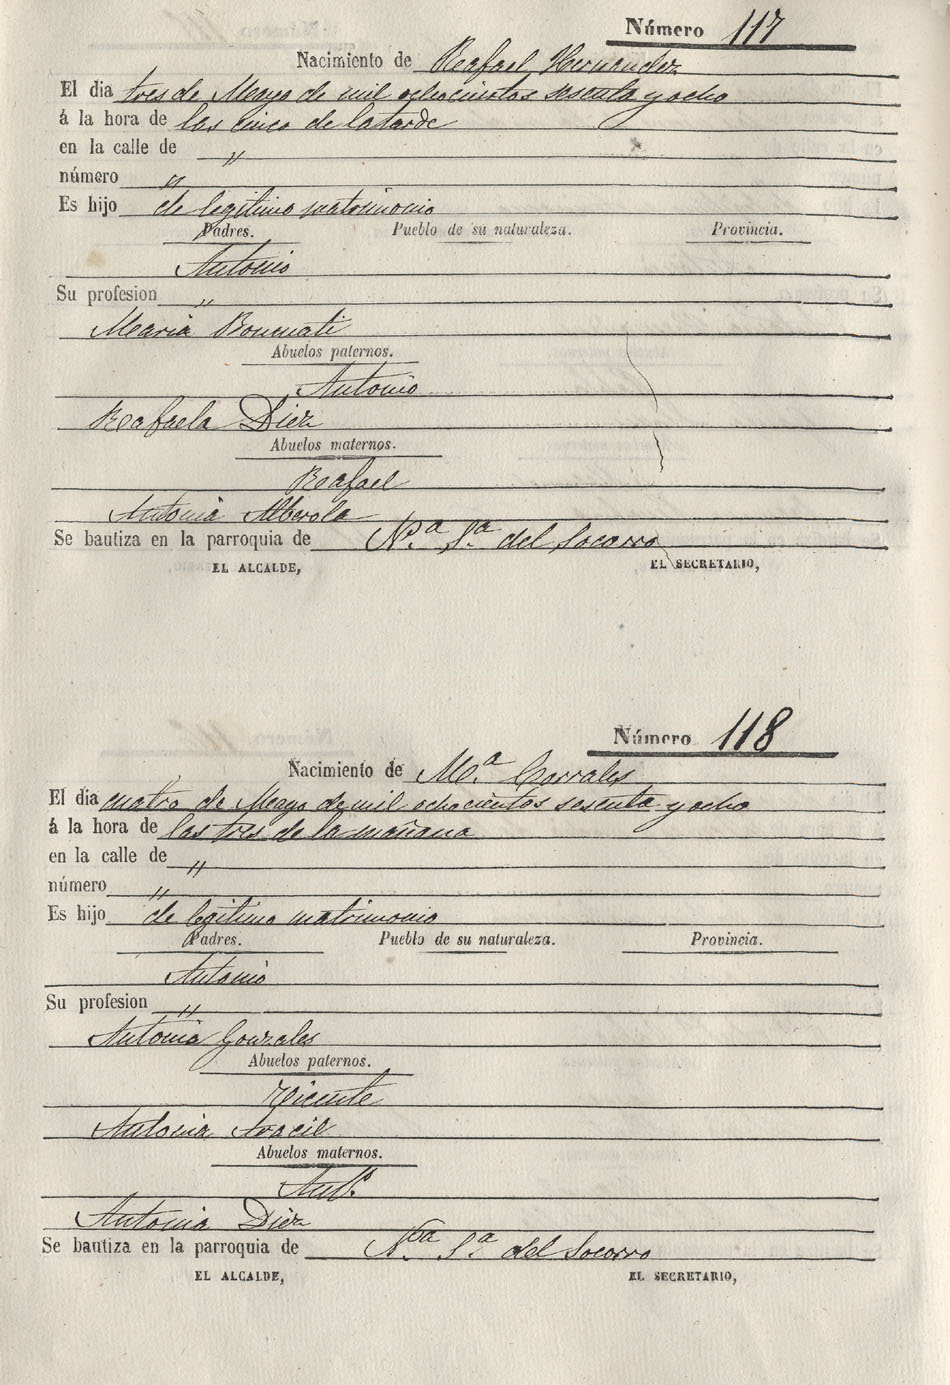 Número 117
Nacimiento de Rafael Hernandez
El dia tres de Mayo de mil ochocientos sesenta y ocho
á la hora de las cinco de la tarde
en la calle de "
número "
Es hijo de legitimo matrimonio
Padres. Pueblo de su naturaleza. Provincia.
Antonio
Su profesion "
Maria Bonmati
Abuelos paternos.
Antonio
Rafaela Diez
Abuelos maternos.
Rafael
Antonia Alberola
Se bautiza en la parroquia de N.ª S.ª del Socorro
EL ALCALDE, EL SECRETARIO,
Número 118
Nacimiento de M.ª Corrales
El dia cuatro de Mayo de mil ochocientos sesenta y ocho
á la hora de las tres de la mañana
en la calle de "
número "
Es hijo de legitimo matrimonio
Padres. Pueblo de su naturaleza. Provincia.
Antonio
Su profesion "
Antonia Gonzales
Abuelos paternos.
Vicente
Antonia Aracil
Abuelos maternos.
Ant.º
Antonia Diez
Se bautiza en la parroquia de N.ª S.ª del Socorro
EL ALCALDE, EL SECRETARIO,